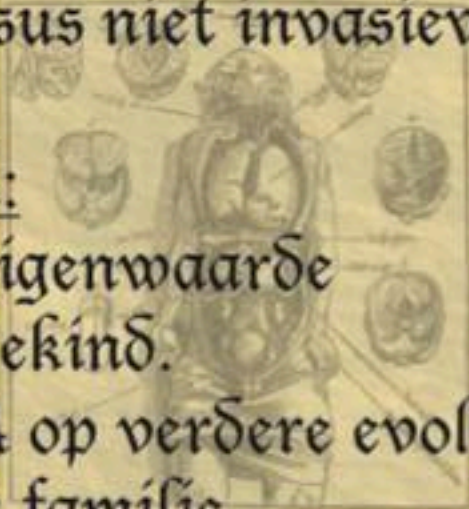 sus niet invasiev
:
igenwaarde
ekind.
op verdere evol
familie